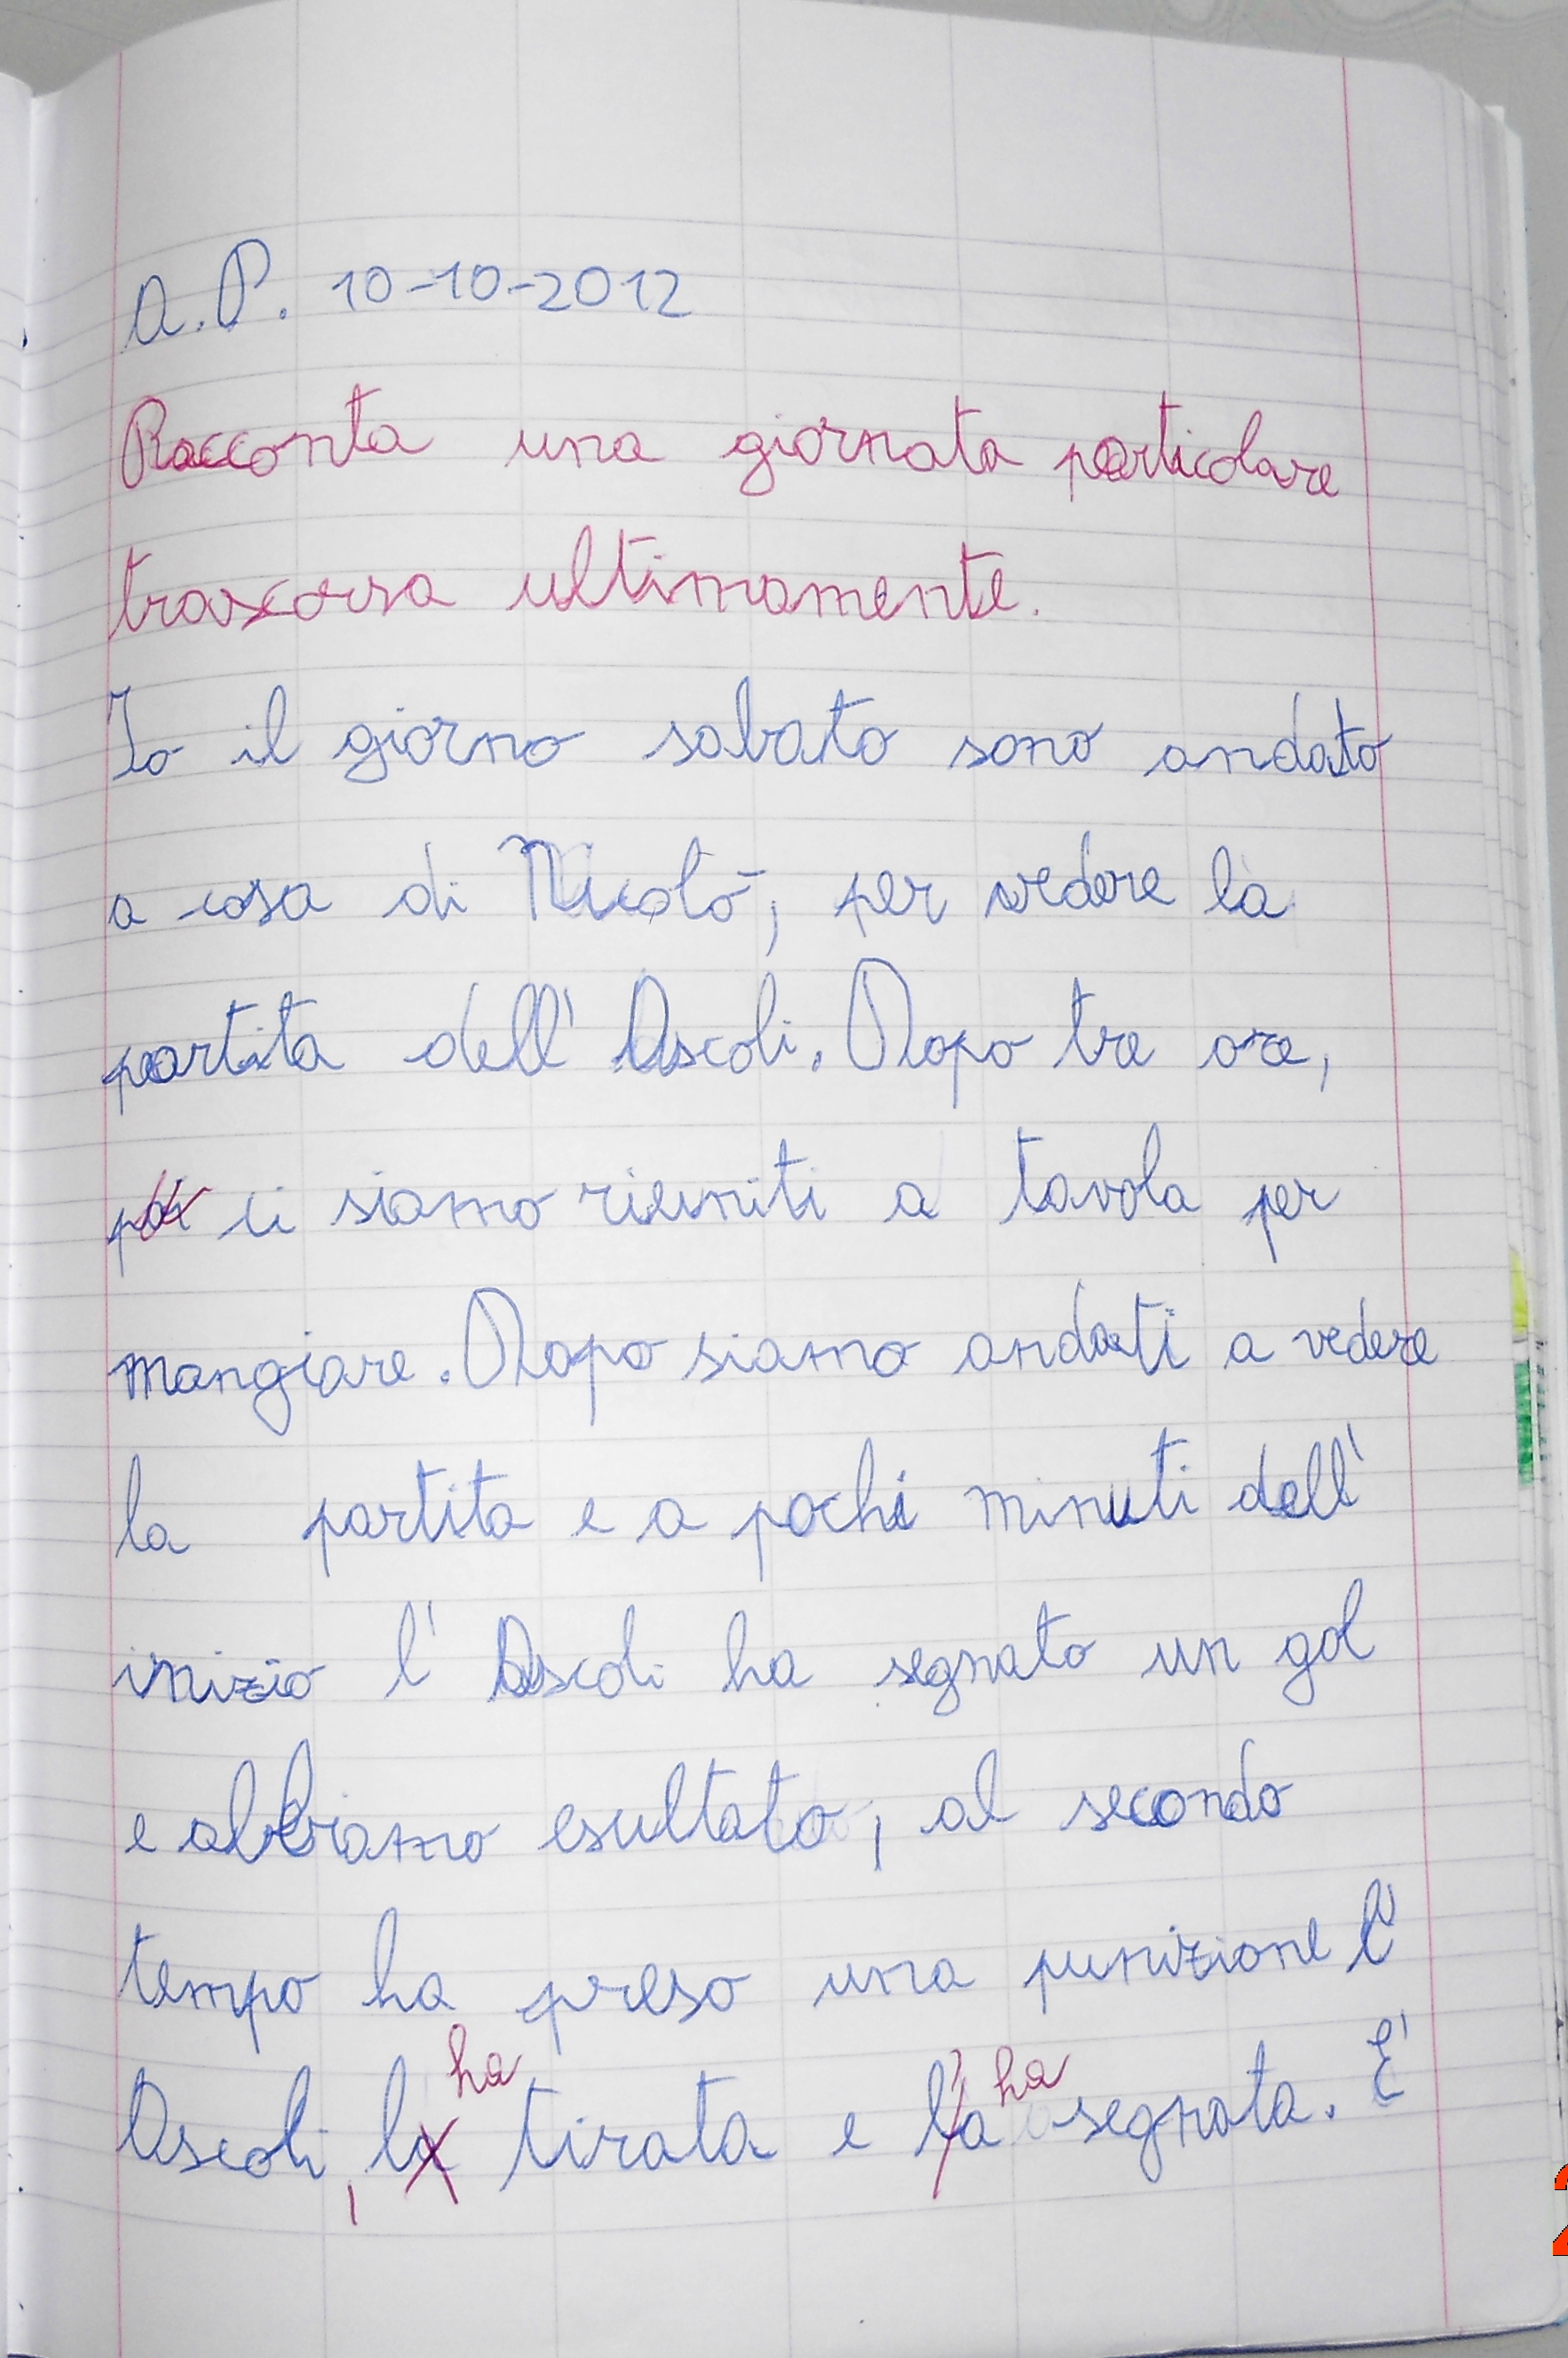 A.P. 10-10-2012
Racconta una giornata particolare
trascorsa ultimamente.
Io il giorno sabato sono andato
a casa di Nicolò, per vedere la
partita dell' Ascoli. Dopo tre ore,
poi ci siamo riuniti a tavola per
mangiare. Dopo siamo andati a vedere
la partita e a pochi minuti dell'
inizio l' Ascoli ha segnato un gol
e abbiamo esultato, al secondo
tempo ha preso una punizione l'
ha ha
Ascoli, la tirata e l'a segnata. E'